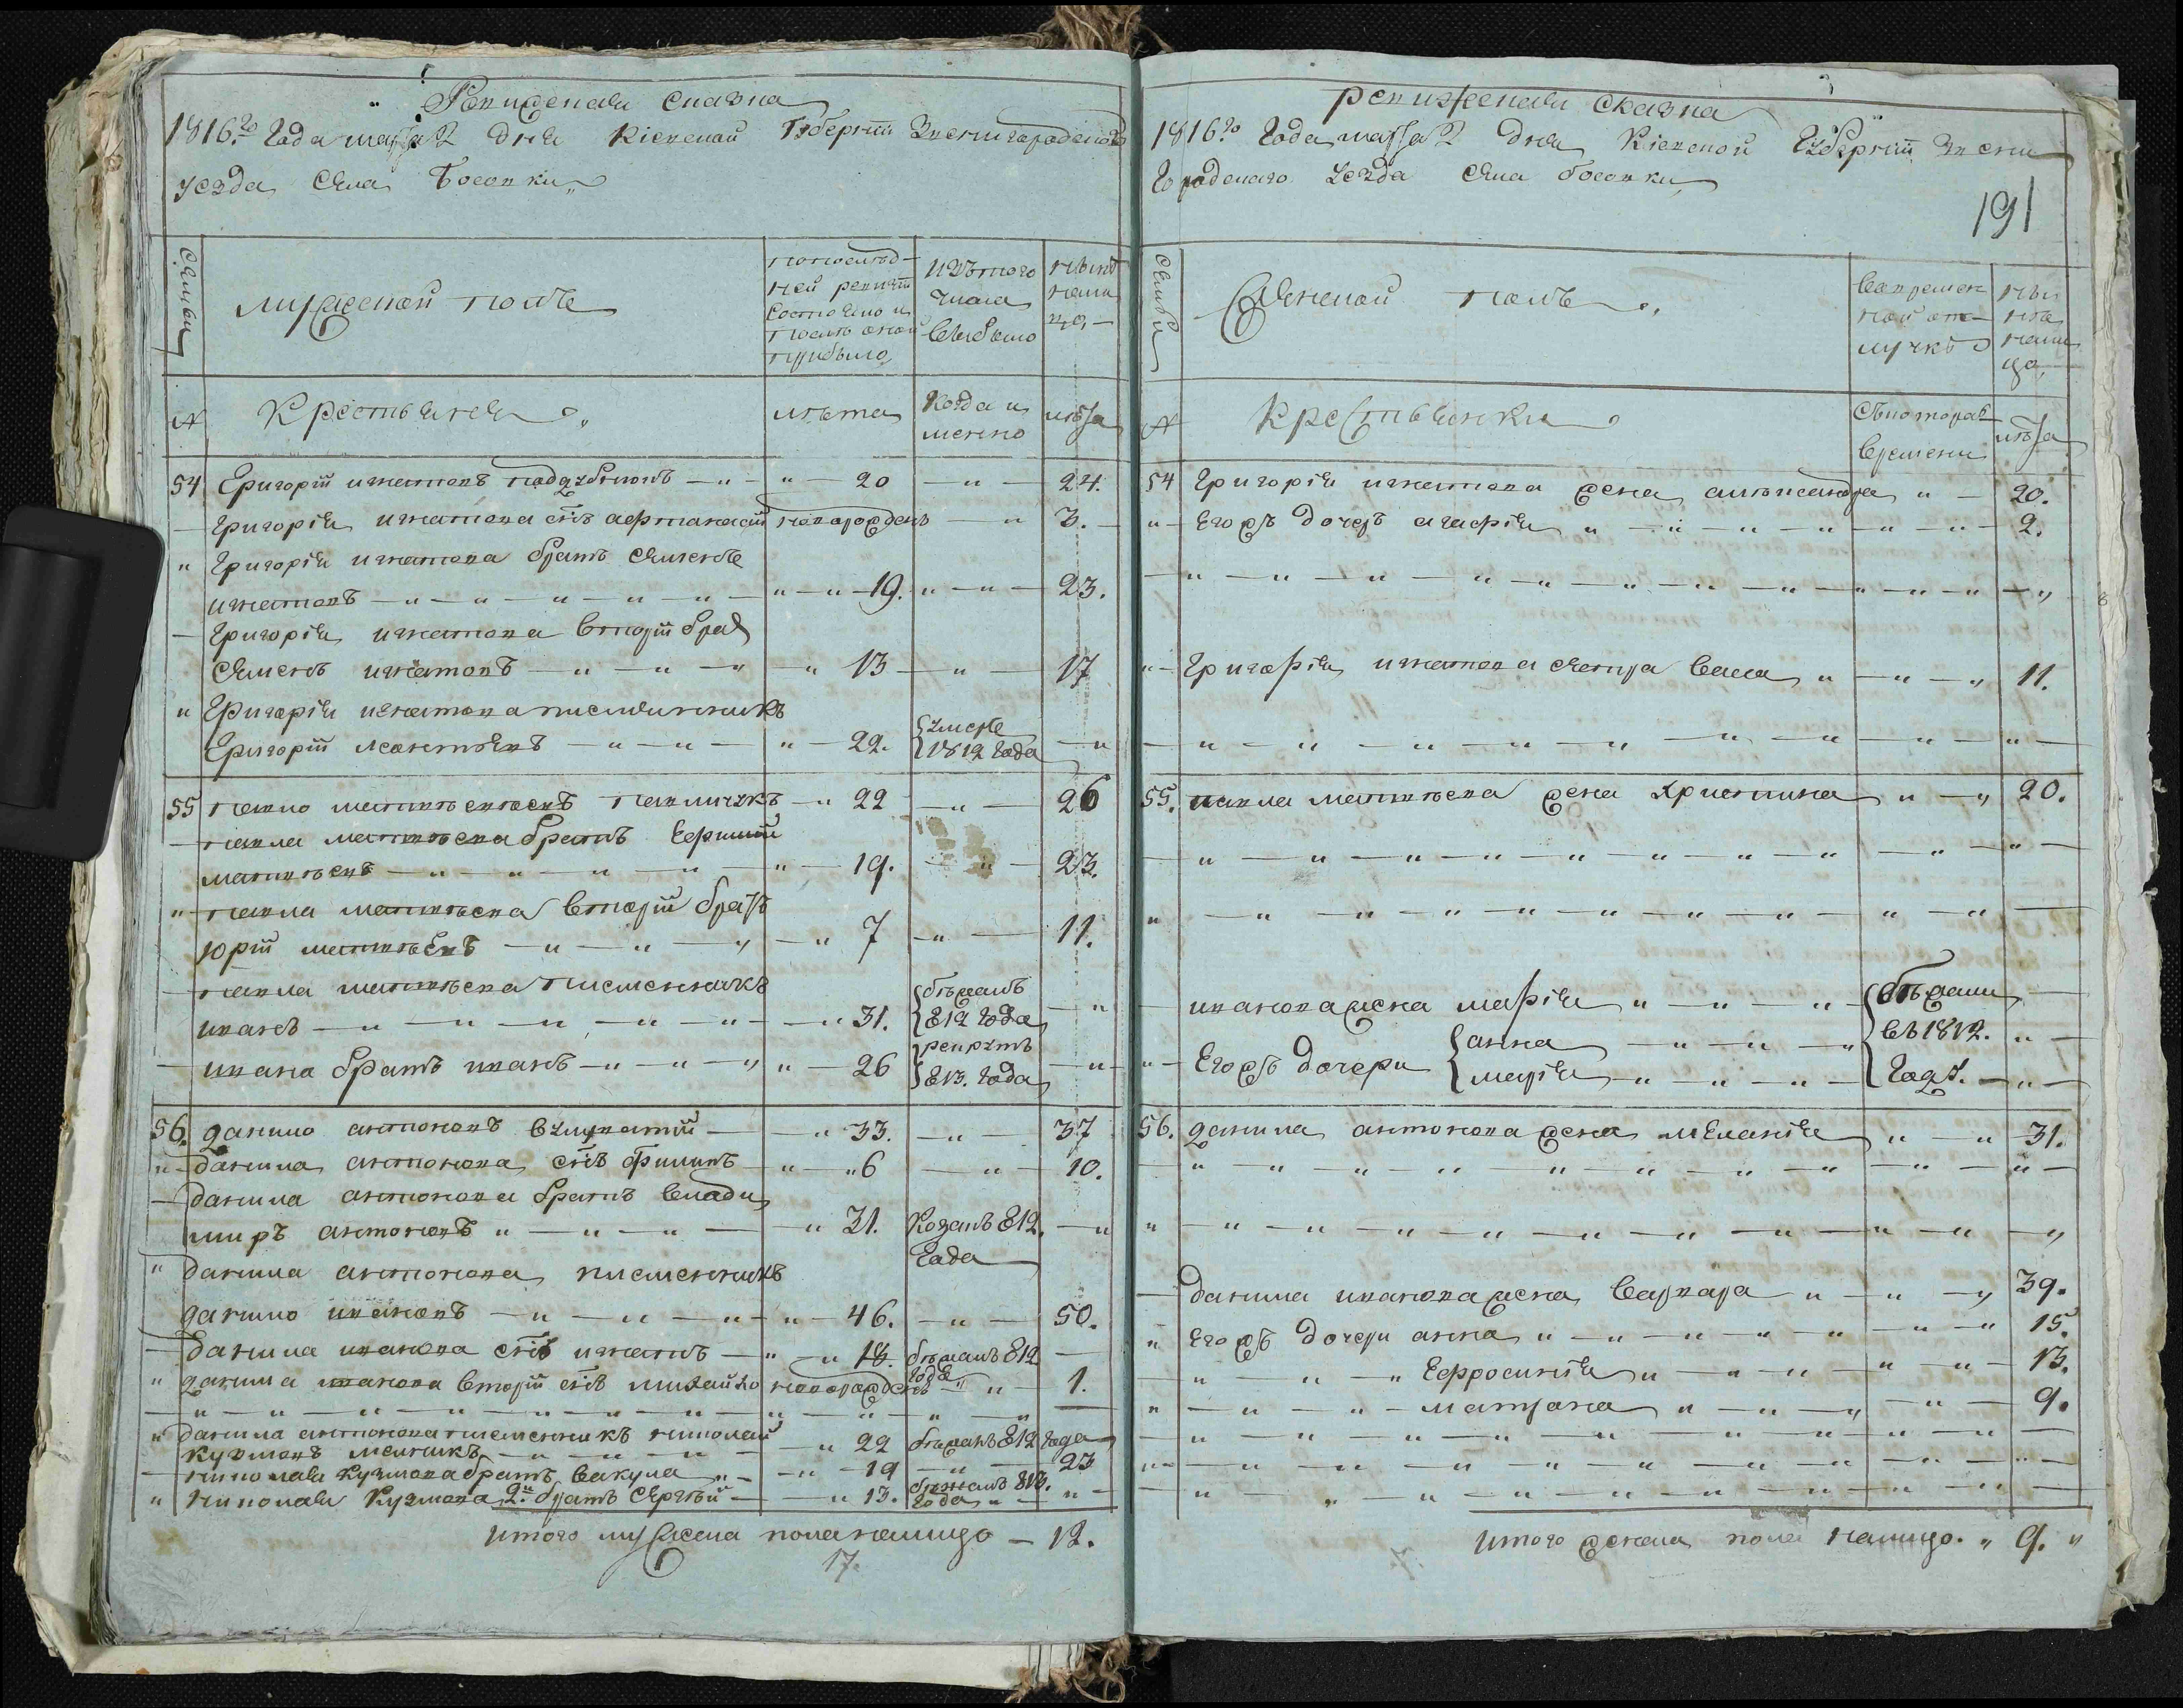 Ревизская сказка
1816го Года мая 2 дня Кіевской Губерніи Звенигородского
уезда Села Босовки
Семьи
мужеской полъ
по последней ревизіи состояло и после оной прибыло
изътого числа выбыло
ныне налицо
№
Крестьяне
лѣта
Когда имянно
лѣта
54 Григорій игнатовъ 20 24.
Григорія игнатова снъ афтанасій новорожденъ 3.
Григорія игнатова братъ Семенъ
игнатовъ 19. 23.
Григорія игнатова вторій братъ
Семенъ игнатовъ 13 17
Григорія игнатова писменникъ
Григорій 22. умре 1812 Года
55 павло матвѣевъ павличукъ 22 26
павла матвѣева братъ
матвѣевъ 19. 23.
павла матвѣева вторій братъ
юрій матвѣевъ 7 11.
павла матвѣева писменникъ
иванъ 31. бѣжалъ 812 Года
ивана братъ иванъ 26 рекрутъ 813. Года
56. данило антоновъ 33. 37
данила антонова снъ филипъ 6 10.
данила антонова братъ влади
миръ антоновъ 31. Козакъ 812. Года
данила антонова писменникъ
данило ивановъ 46. 50.
данила иванова снъ игнатъ 18. бѣжалъ 812 Года
данила иванова вторій снъ михайло новорожденъ 1.
данила антонова писменникъ николай
кузмовъ мелникъ 22 бѣжалъ 812 Года
николая кузмова братъ вакула 19 23
николая кузмова 2й братъ Сергѣй 13. бѣжалъ 813. Года
итого мужеска пола налицо 12.
17.
ревизская сказка
1816го Года мая 2 дня Кіевской Губерніи Звени
городскаго уезда Села босовки
191
Семьи
Женской полъ
Вовременной отлучкѣ
ныне налицо
№
Крестьянки
Съкоторого времени
лѣта
54 Григорія игнатова жена александра 20.
Егожъ дочеръ агафія 2.
Григорія игнатова сестра васса 11.
55. павла матвѣева жена христина 20.
иванова жена марія бѣжали
Егожъ дочери анна въ 1812.
марія Году.
56. данила антонова жена меланія 31.
данила иванова жена варвара 39.
Егожъ дочери анна 15.
Ефросинія 13.
матрона 9.
итого женска пола налицо. 9.
7.